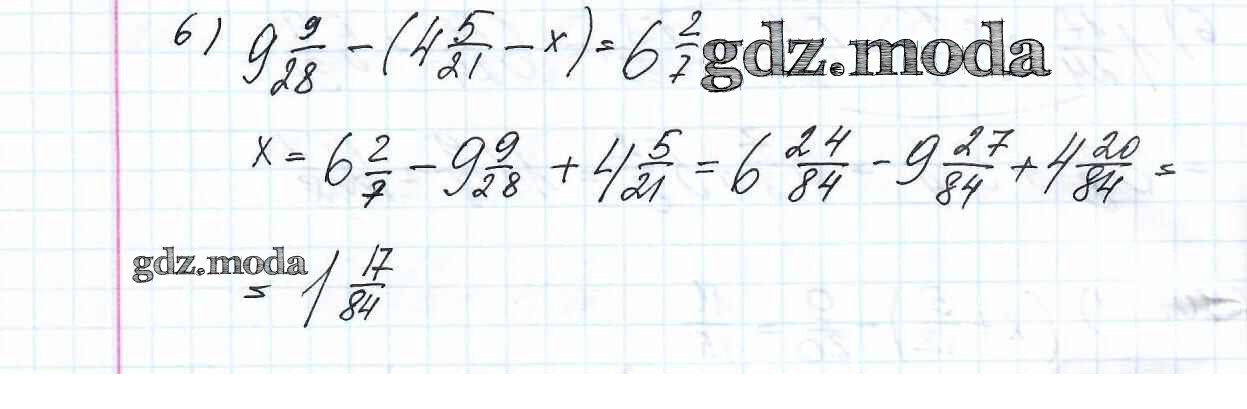 б) 9 9/28 - (4 5/21 - x) = 6 2/7 gdz.moda
x = 6 2/7 - 9 9/28 + 4 5/21 = 6 24/84 - 9 27/84 + 4 20/84 =
gdz.moda
= 1 17/84